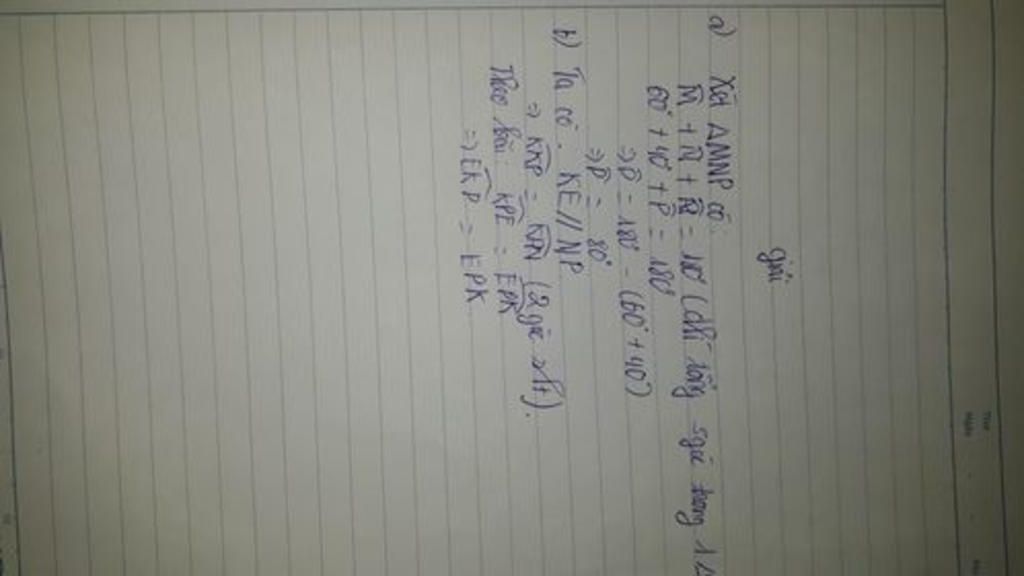 giải
a) Xét ΔMNP có:
M̂ + N̂ + P̂ = 180° (đlí tổng 3 góc trong 1Δ
60° + 40° + P̂ = 180°
⇒ P̂ = 180° - (60° + 40°)
⇒ P̂ = 80°
b) Ta có: KE // NP
⇒ = KPN (2 góc slt).
Theo bài KPE = EPK
⇒ EKP = EPK